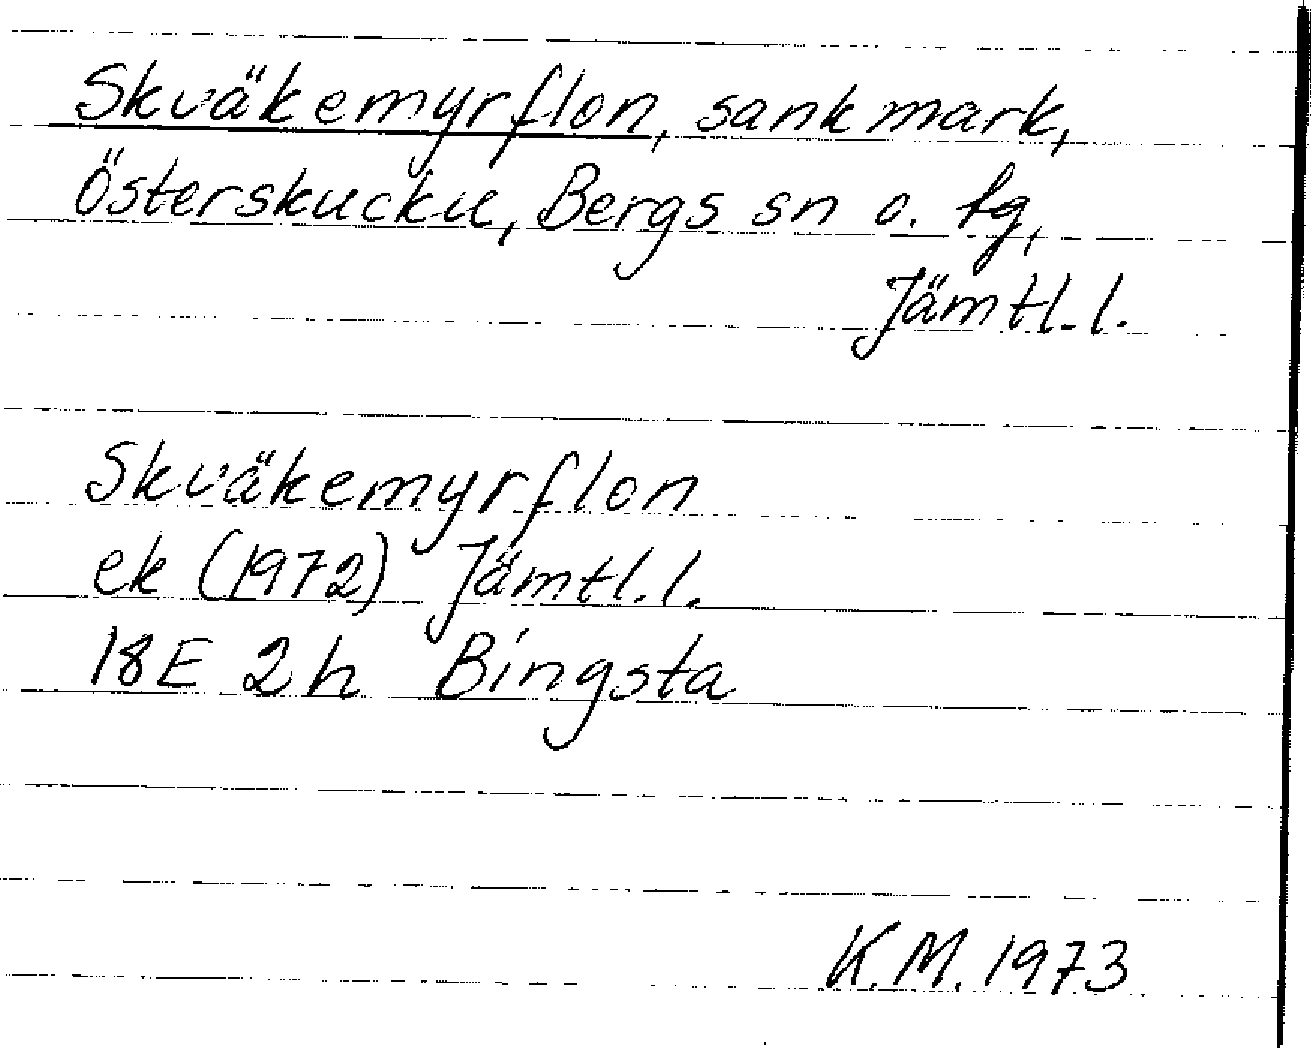 Skväkemyrflon, sankmark,
Österskucku, Bergs sn o. tg,
Jämtl. l.
Skväkemyrflon
ek (1972) Jämtl. l.
18E 2h Bingsta
K.M. 1973